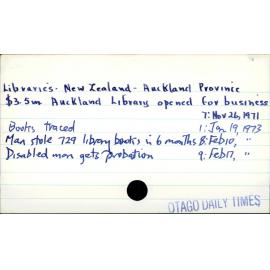 Libraries - New Zealand - Auckland Province
$3.5m Auckland Library opened for business
7: Nov 26, 1971
Books traced 1: Jan 19, 1973
Man stole 729 library books in 6 months 8: Feb 10, "
Disabled man gets probation 9: Feb 17, "
OTAGO DAILY TIMES